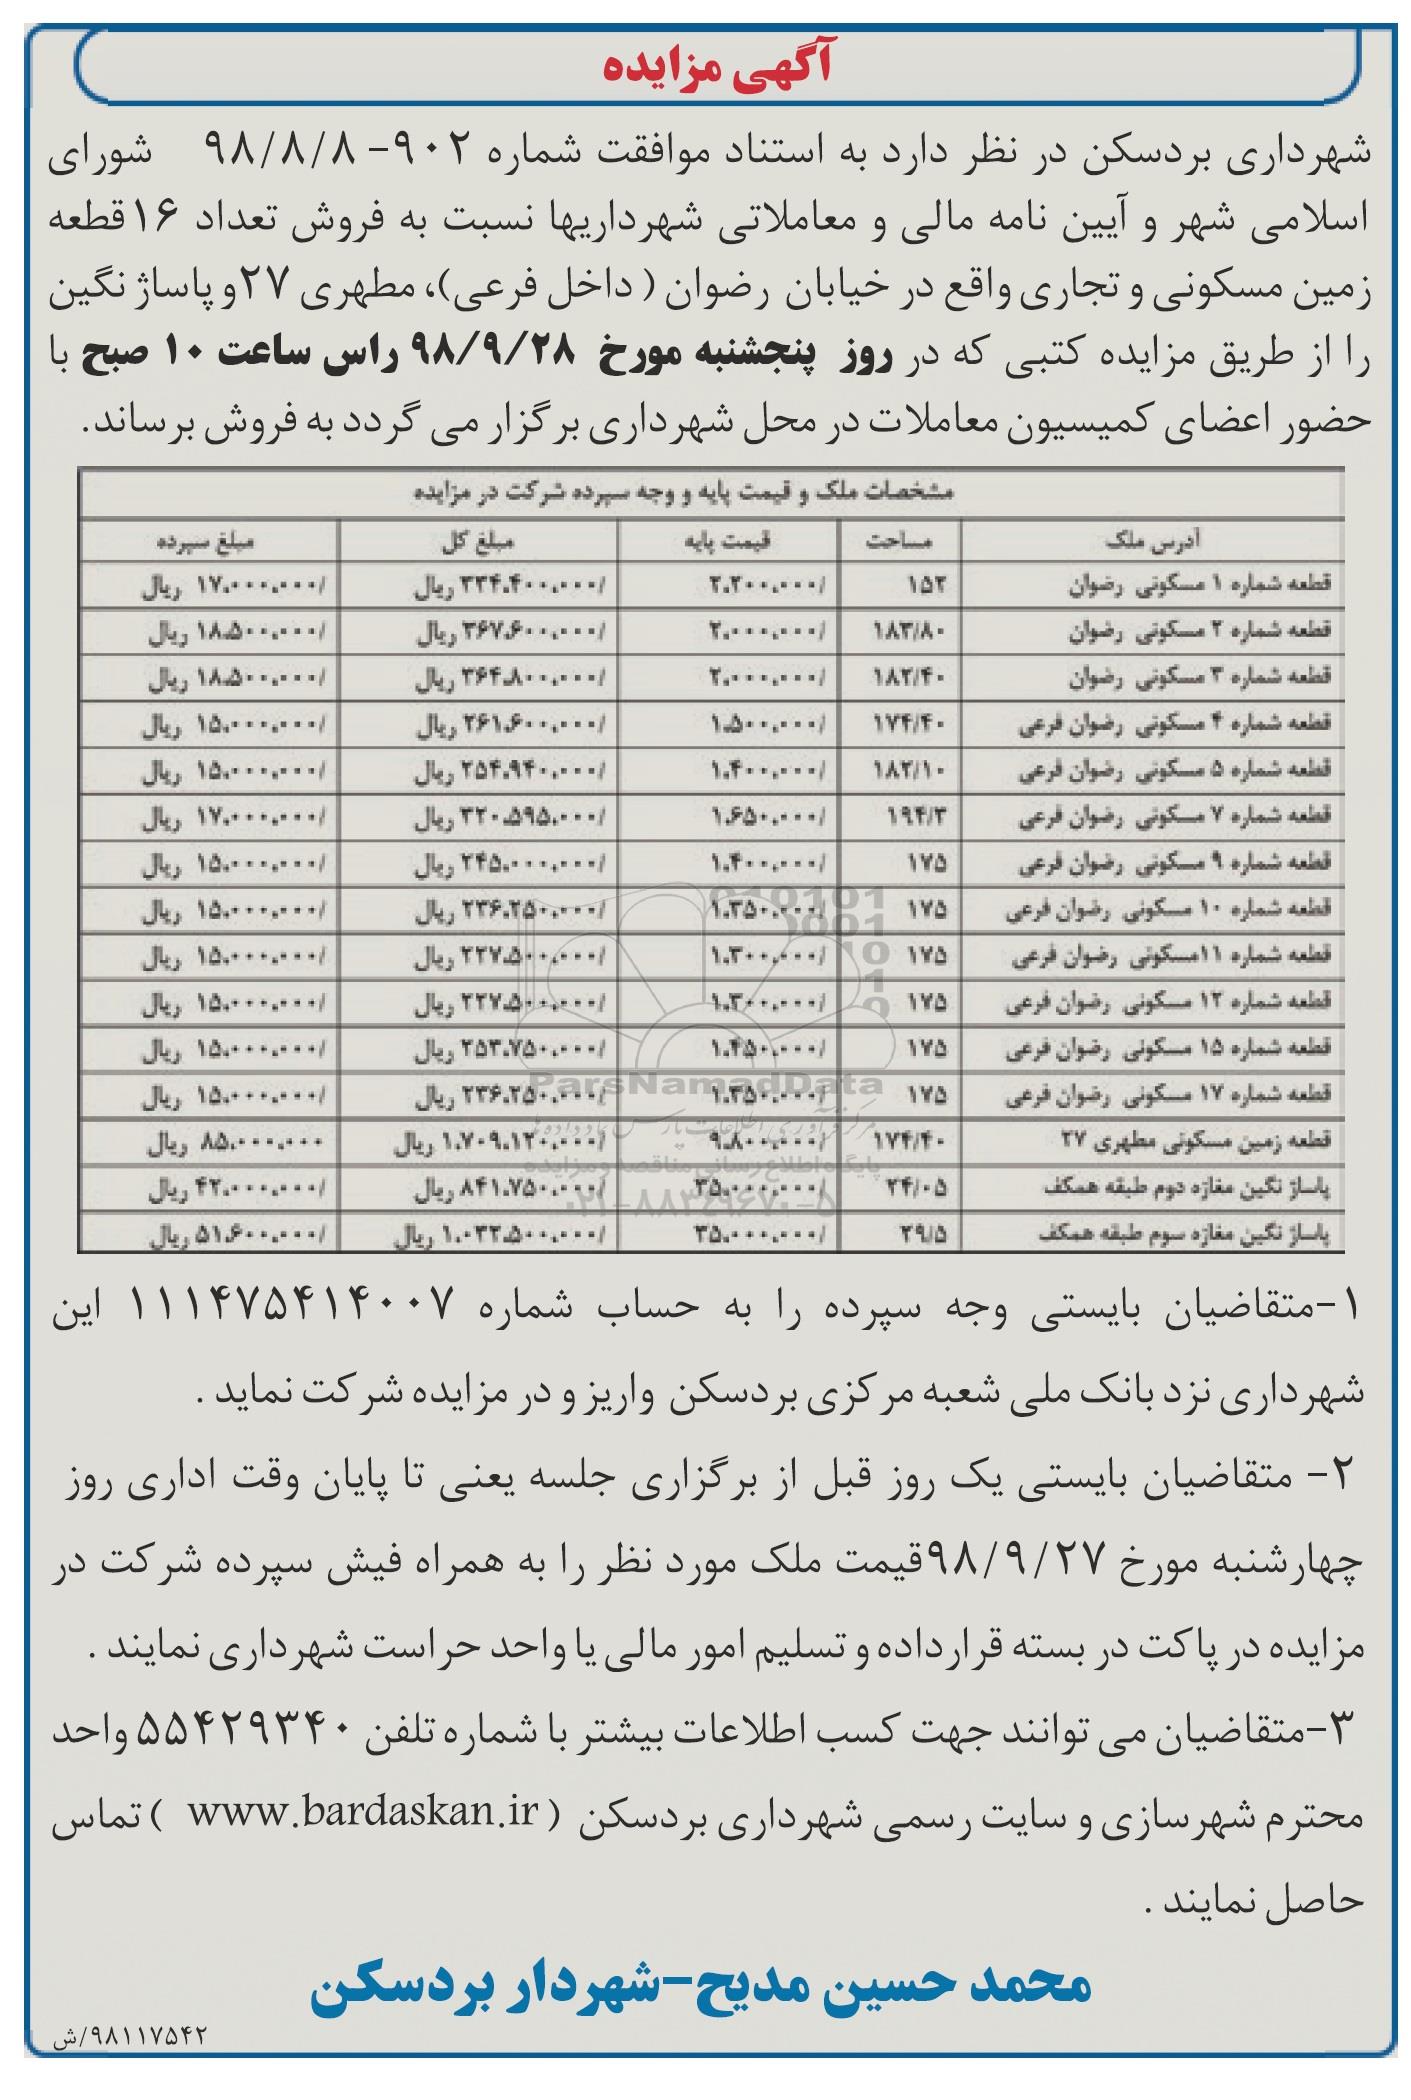 آگهی مزایده
شهرداری بردسکن در نظر دارد به استناد موافقت شماره ۹۰۲- ۹۸/۸/۸ شورای
اسلامی شهر و آیین نامه مالی و معاملاتی شهرداریها نسبت به فروش تعداد ۱۶قطعه
زمین مسکونی و تجاری واقع در خیابان رضوان ( داخل فرعی)، مطهری ۲۷و پاساژ نگین
را از طریق مزایده کتبی که در روز پنجشنبه مورخ ۹۸/۹/۲۸ راس ساعت ۱۰ صبح با
حضور اعضای کمیسیون معاملات در محل شهرداری برگزار می گردد به فروش برساند.
مشخصات ملک و قیمت پایه و وجه سپرده شرکت در مزایده
آدرس ملک مساحت قیمت پایه مبلغ کل مبلغ سپرده
قطعه شماره ۱ مسکونی رضوان ۱۵۲ ۲،۲۰۰،۰۰۰/ ۳۳۴،۴۰۰،۰۰۰/ ریال ۱۷،۰۰۰،۰۰۰/ ریال
قطعه شماره ۲ مسکونی رضوان ۱۸۳/۸۰ ۲،۰۰۰،۰۰۰/ ۳۶۷،۶۰۰،۰۰۰/ ریال ۱۸،۵۰۰،۰۰۰/ ریال
قطعه شماره ۳ مسکونی رضوان ۱۸۲/۴۰ ۲،۰۰۰،۰۰۰/ ۳۶۴،۸۰۰،۰۰۰/ ریال ۱۸،۵۰۰،۰۰۰/ ریال
قطعه شماره ۴ مسکونی رضوان فرعی ۱۷۴/۴۰ ۱،۵۰۰،۰۰۰/ ۲۶۱،۶۰۰،۰۰۰/ ریال ۱۵،۰۰۰،۰۰۰/ ریال
قطعه شماره ۵ مسکونی رضوان فرعی ۱۸۲/۱۰ ۱،۴۰۰،۰۰۰/ ۲۵۴،۹۴۰،۰۰۰/ ریال ۱۵،۰۰۰،۰۰۰/ ریال
قطعه شماره ۷ مسکونی رضوان فرعی ۱۹۴/۳ ۱،۶۵۰،۰۰۰/ ۳۲۰،۵۹۵،۰۰۰/ ریال ۱۷،۰۰۰،۰۰۰/ ریال
قطعه شماره ۹ مسکونی رضوان فرعی ۱۷۵ ۱،۴۰۰،۰۰۰/ ۲۴۵،۰۰۰،۰۰۰/ ریال ۱۵،۰۰۰،۰۰۰/ ریال
قطعه شماره ۱۰ مسکونی رضوان فرعی ۱۷۵ ۱،۳۵۰،۰۰۰/ ۲۳۶،۲۵۰،۰۰۰/ ریال ۱۵،۰۰۰،۰۰۰/ ریال
قطعه شماره ۱۱مسکونی رضوان فرعی ۱۷۵ ۱،۳۰۰،۰۰۰/ ۲۲۷،۵۰۰،۰۰۰/ ریال ۱۵،۰۰۰،۰۰۰/ ریال
قطعه شماره ۱۲ مسکونی رضوان فرعی ۱۷۵ ۱،۳۰۰،۰۰۰/ ۲۲۷،۵۰۰،۰۰۰/ ریال ۱۵،۰۰۰،۰۰۰/ ریال
قطعه شماره ۱۵ مسکونی رضوان فرعی ۱۷۵ ۱،۴۵۰،۰۰۰/ ۲۵۳،۷۵۰،۰۰۰/ ریال ۱۵،۰۰۰،۰۰۰/ ریال
قطعه شماره ۱۷ مسکونی رضوان فرعی ۱۷۵ ۱،۳۵۰،۰۰۰/ ۲۳۶،۲۵۰،۰۰۰/ ریال ۱۵،۰۰۰،۰۰۰/ ریال
قطعه زمین مسکونی مطهری ۲۷ ۱۷۴/۴۰ ۹،۸۰۰،۰۰۰/ ۱،۷۰۹،۱۲۰،۰۰۰/ ریال ۸۵،۰۰۰،۰۰۰ ریال
پاساژ نگین مغازه دوم طبقه همکف ۲۴/۰۵ ۳۵،۰۰۰،۰۰۰/ ۸۴۱،۷۵۰،۰۰۰/ ریال ۴۲،۰۰۰،۰۰۰/ ریال
پاساژ نگین مغازه سوم طبقه همکف ۲۹/۵ ۳۵،۰۰۰،۰۰۰/ ۱،۰۳۲،۵۰۰،۰۰۰/ ریال ۵۱،۶۰۰،۰۰۰/ ریال
ParsNamadData
پایگاه اطلاع رسانی مناقصه و مزایده
۰۲۱-۸۸۳۴۹۶۷۰-۵
۱-متقاضیان بایستی وجه سپرده را به حساب شماره ۱۱۱۴۷۵۴۱۴۰۰۷ این
شهرداری نزد بانک ملی شعبه مرکزی بردسکن واریز و در مزایده شرکت نماید .
۲- متقاضیان بایستی یک روز قبل از برگزاری جلسه یعنی تا پایان وقت اداری روز
چهارشنبه مورخ ۹۸/۹/۲۷قیمت ملک مورد نظر را به همراه فیش سپرده شرکت در
مزایده در پاکت در بسته قرارداده و تسلیم امور مالی یا واحد حراست شهرداری نمایند .
۳-متقاضیان می توانند جهت کسب اطلاعات بیشتر با شماره تلفن ۵۵۴۲۹۳۴۰ واحد
محترم شهرسازی و سایت رسمی شهرداری بردسکن ( www.bardaskan.ir ) تماس
حاصل نمایند .
محمد حسین مدیح-شهردار بردسکن
۹۸۱۱۷۵۴۲/ش